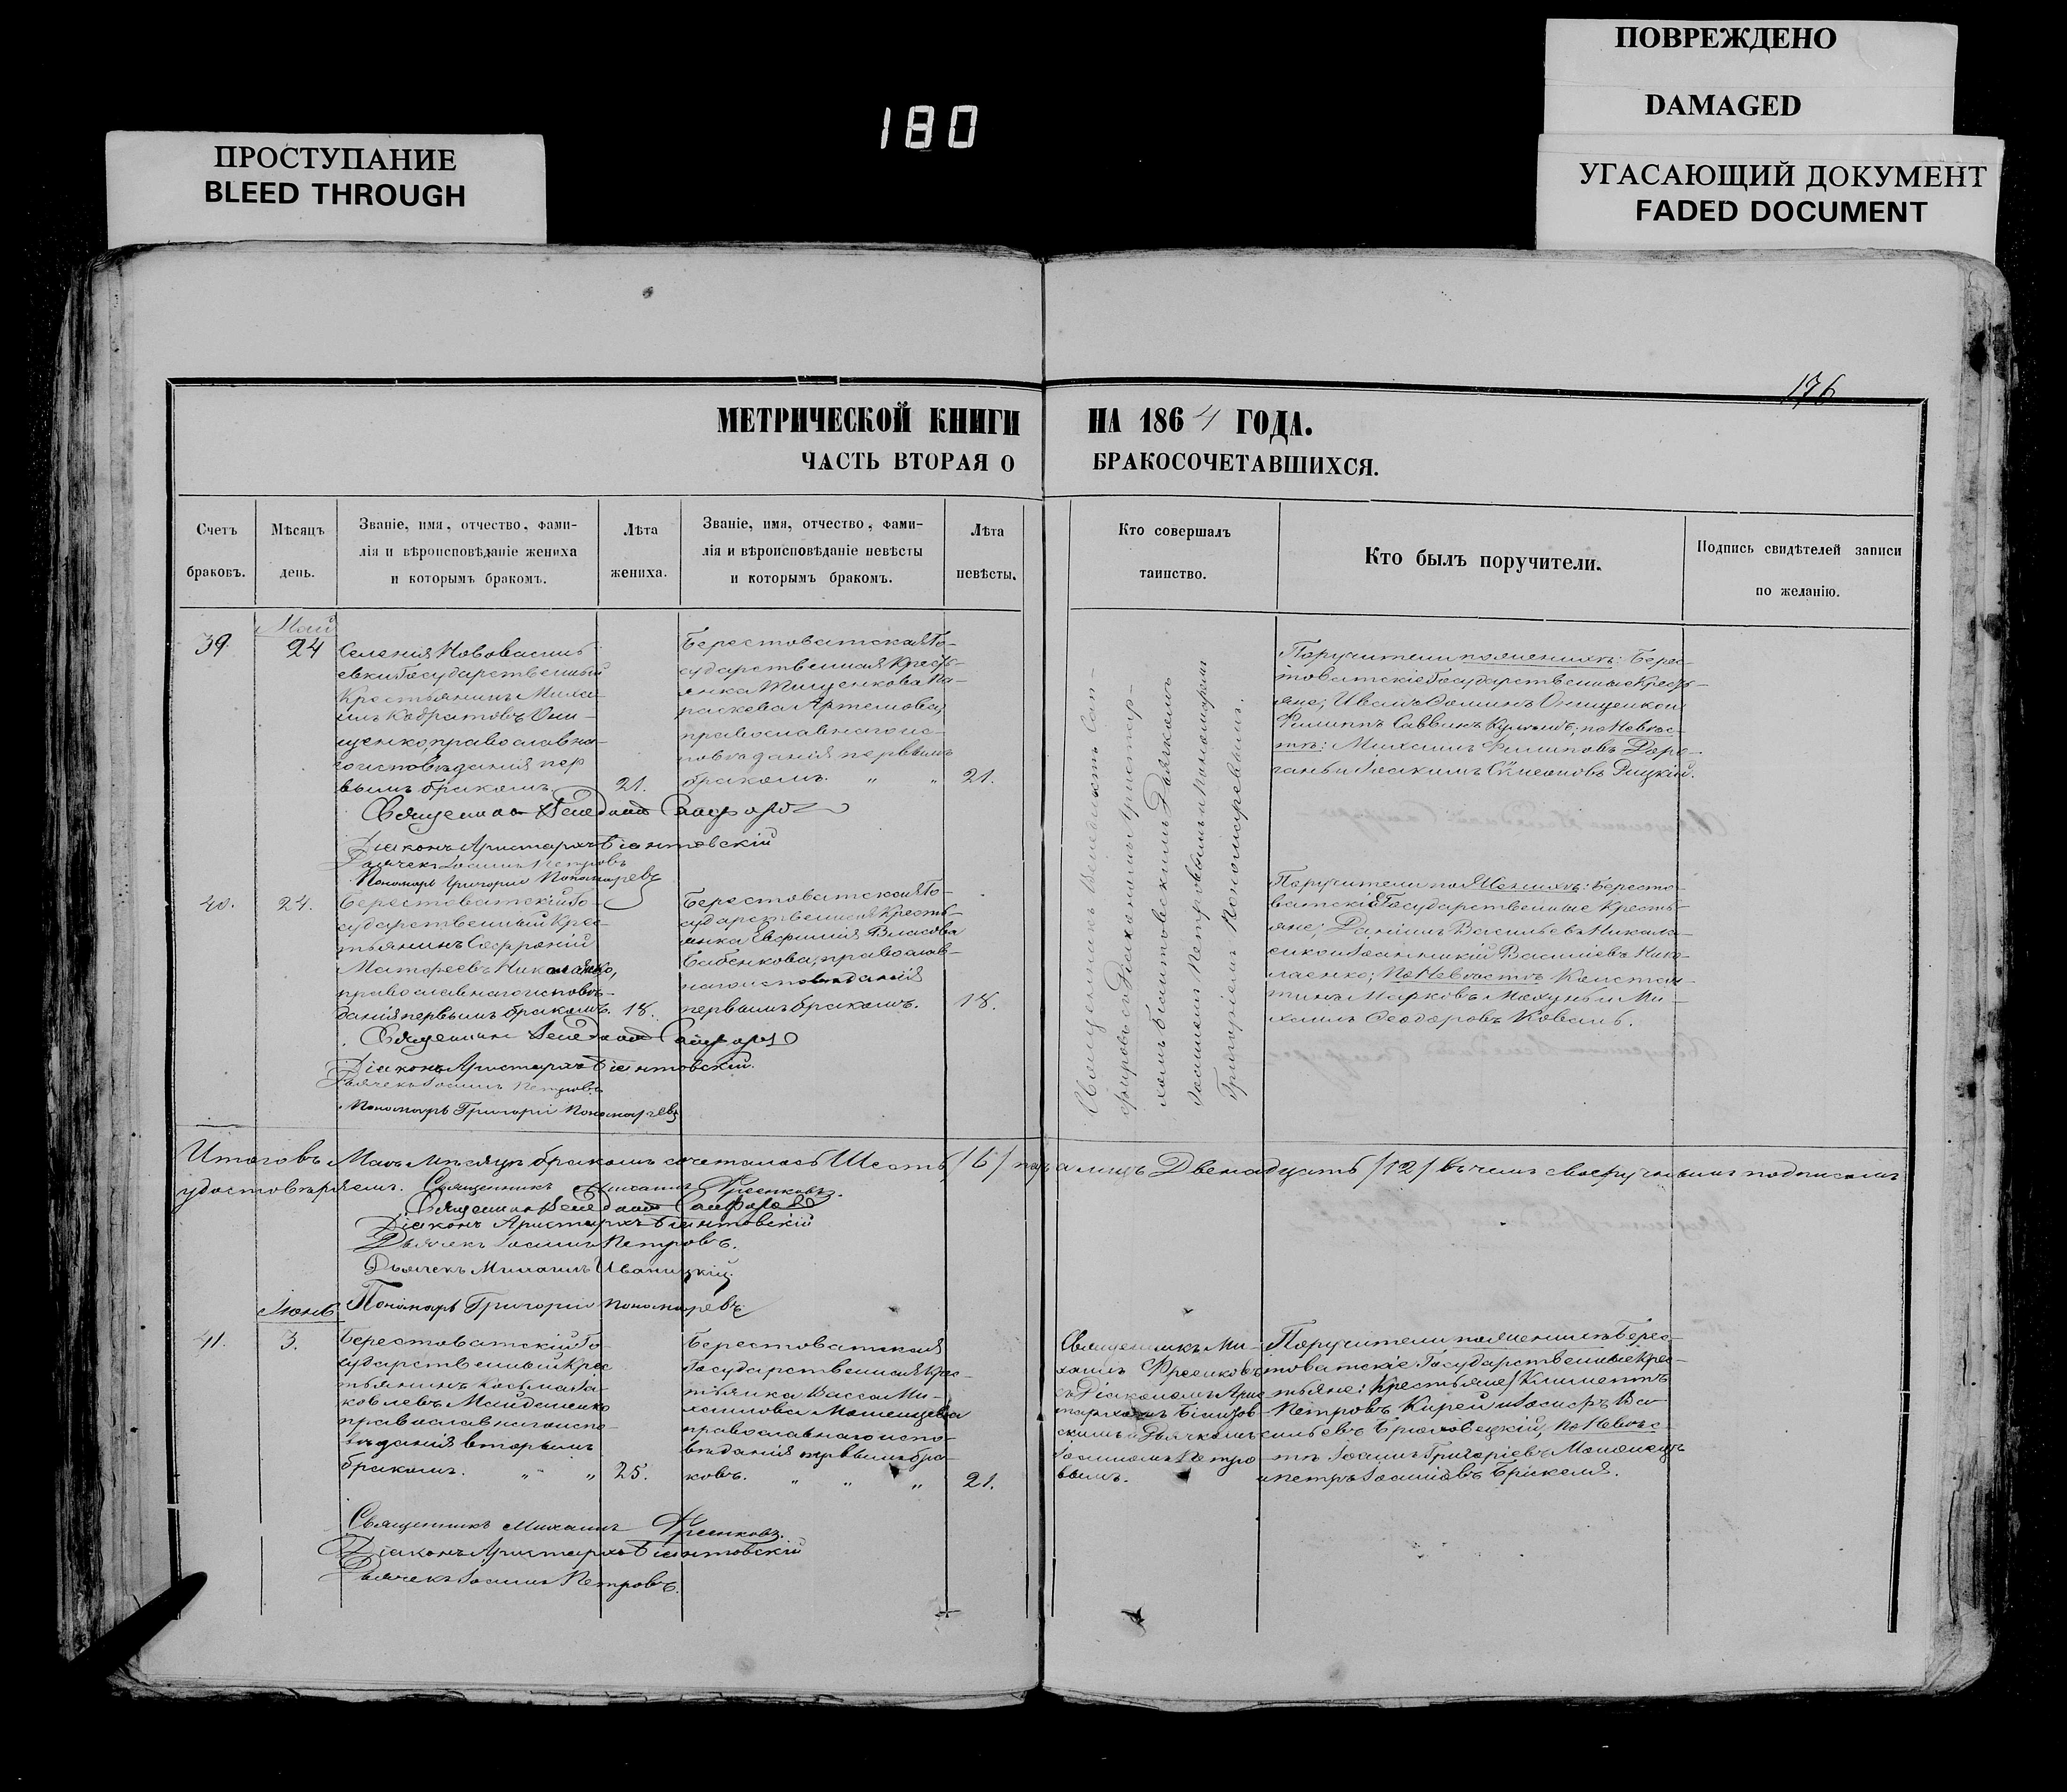 ПОВРЕЖДЕНО
DAMAGED
180
ПРОСТУПАНИЕ
BLEED THROUGH
УГАСАЮЩИЙ ДОКУМЕНТ
FADED DOCUMENT
176
МЕТРИЧЕСКОЙ КНИГИ НА 1864 ГОДА.
ЧАСТЬ ВТОРАЯ О БРАКОСОЧЕТАВШИХСЯ.
Счетъ
браковъ.
Мѣсяцъ
день.
Званіе, имя, отчество, фами-
лія и вѣроисповѣданіе жениха
и которымъ бракомъ.
Лѣта
жениха.
Званіе, имя, отчество, фами-
лія и вѣроисповѣданіе невѣсты
и которымъ бракомъ.
Лѣта
невѣсты.
Кто совершалъ
таинство.
Кто былъ поручители.
Подпись свидѣтелей записи
по желанію.
39.
Май
24
Селенія Нововасиль
евки Государственный
Крестьянинъ Миха-
илъ Кодратовъ Они-
щенко православна-
го исповѣданія пер
вымъ бракомъ
21.
Берестоватская Го-
сударственная Кресть-
янка Тищенкова Па-
раскева Артемова,
православнаго ис-
повѣданія первымъ
бракомъ. " "
21.
Священникъ Сап-
фировъ съ Діакономъ Аристар-
хомъ Біантовскимъ Дьячкомъ
Іоанномъ Петровымъ и пономаремъ
Григоріемъ Пономаревымъ.
Поручители по женихѣ: Берес-
товатскіе Государственные Кресть-
яне; Иванъ Оминъ Онищенко и
Филиппъ Саввинъ по Невѣс-
тѣ: Михаилъ Филиповъ
и Іоакимъ Симеоновъ Рицкій.
Священникъ
Діаконъ Аристархъ Біантовскій
Дьячекъ Іоаннъ Петровъ
Пономарь Григорій Пономаревъ
40.
24.
Берестоватскій Го-
сударственный Крес-
тьянинъ Софроній
Матфеевъ Николаенко,
православнаго исповѣ-
данія первымъ бракомъ.
18.
Берестоватская Го-
сударственная Кресть-
янка Евфимія Власова
Бабенкова, православ-
наго исповѣданія
первымъ бракомъ.
18.
Поручители по Женихѣ: Бересто-
ватскіе Государственные Кресть-
яне; Даніилъ Васильевъ Никола-
енко и Іоанникій Василіевъ Нико-
лаенко; По Невѣстѣ Констан-
тинъ Марковъ Махунь и Ми-
хаилъ Феодоровъ Коваль.
Священникъ
Діаконъ Аристархъ Біантовскій.
Дьячекъ Іоаннъ Петровъ.
Пономарь Григорій Пономаревъ
Итого въ Маѣ Мѣсяцѣ бракомъ сочеталось Шесть /6/ паръ а лицъ Двенадцать /12/ въ чемъ своеручнымъ подписомъ
удостовѣряемъ. Священникъ Михаилъ Фреенковъ.
Священникъ
Діаконъ Аристархъ Біантовскій
Дьячекъ Іоаннъ Петровъ.
Дьячекъ Михаилъ Иваницкій.
Пономарь Григорій Пономаревъ
Іюнь
41.
3.
Берестоватскій Го-
сударственный Крес
тьянинъ Косьма Іа-
ковлевъ Майданенко
православнаго испо-
вѣданія вторымъ
бракомъ. " "
25.
Берестоватская
Государственная Крес-
тьянка Васса Ми-
хаилова Мошенцева
православнаго испо-
вѣданія первымъ бра-
комъ. " " "
21.
Священникъ Ми-
хаилъ Фреенковъ
съ Діакономъ Арис
тархомъ Біантов
скимъ и Дьячкомъ
Іоанномъ Петро
вымъ.
Поручители по женихѣ Берес-
товатскіе Государственные Крес-
тьяне: Крестьяне/ Климентъ
Петровъ Кирей и Іосифъ Ва
сильевъ Брюховецкій, По Невѣс-
тѣ Іоаннъ Григоріевъ Мошенецъ
и Петръ Іоанновъ
Священникъ Михаилъ Фреенковъ.
Діаконъ Аристархъ Біантовскій
Дьячекъ Іоаннъ Петровъ.